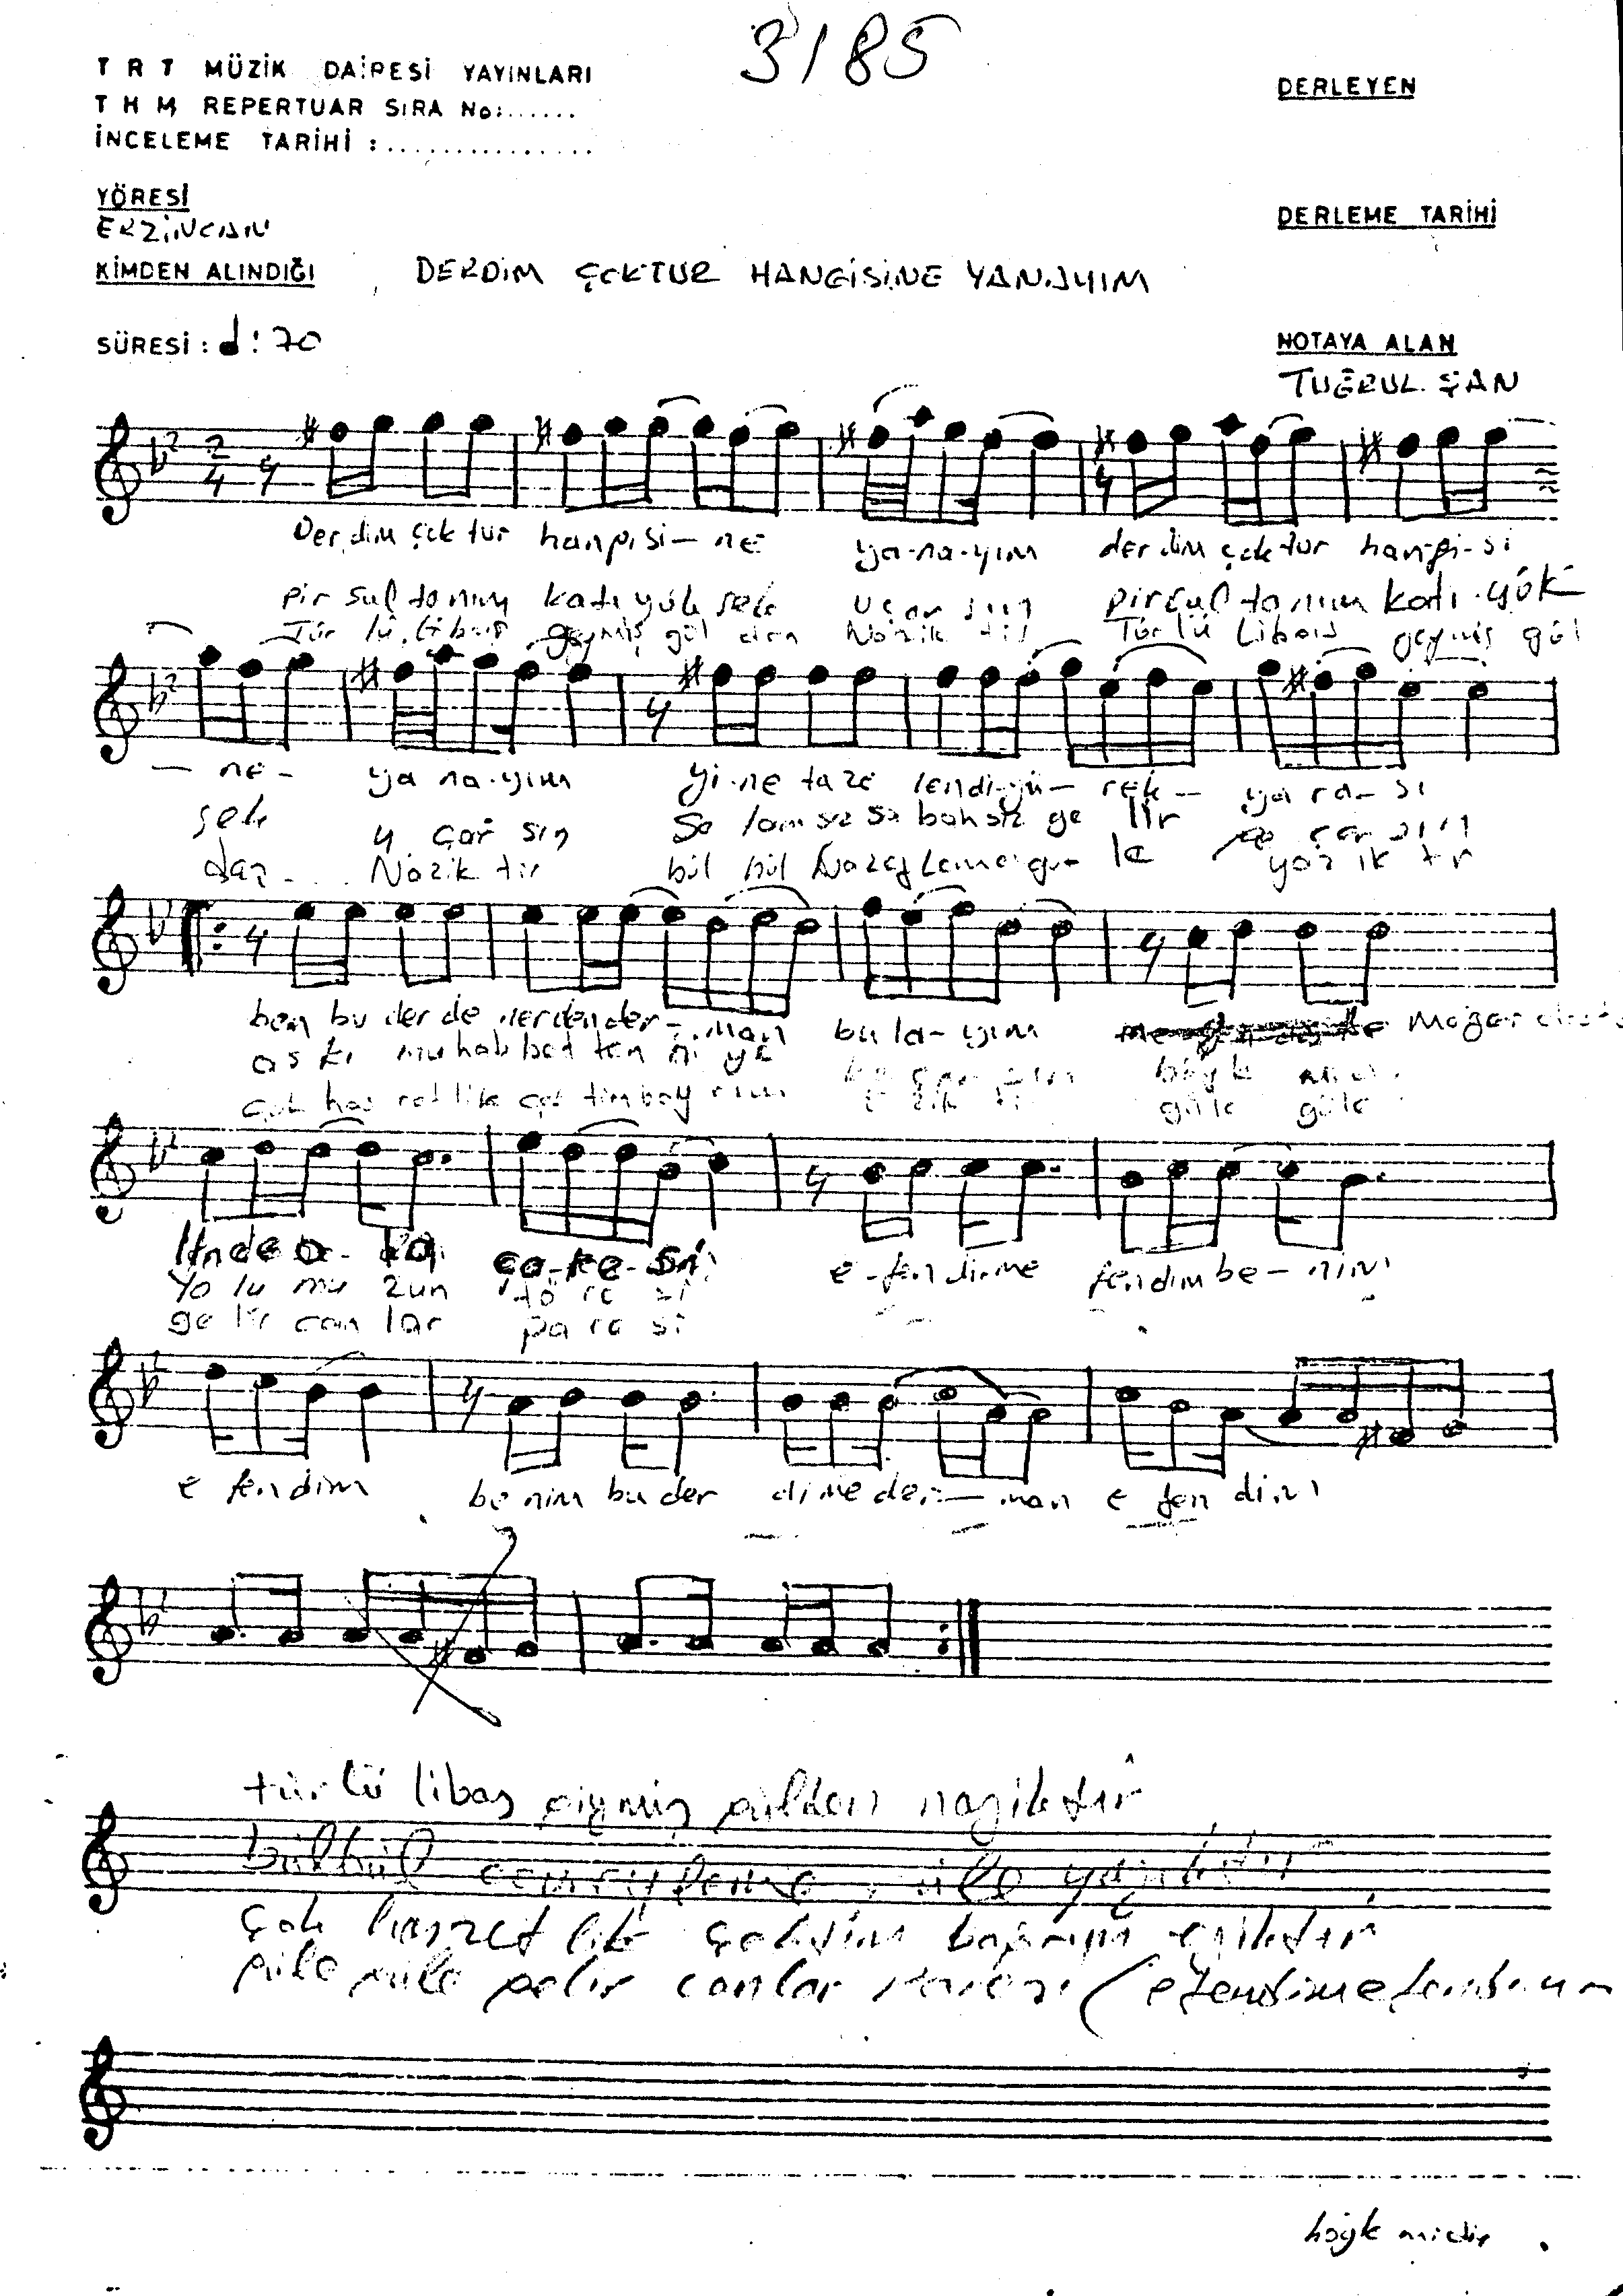 3185
T R T MÜZİK DAİRESİ YAYINLARI
T H M REPERTUAR SIRA No:......
İNCELEME TARİHİ :...............
DERLEYEN
YÖRESİ
ERZİNCAN
DERLEME TARİHİ
KİMDEN ALINDIĞI
DERDİM ÇOKTUR HANGİSİNE YANAYIM
SÜRESİ : 70
NOTAYA ALAN
TUĞRUL ŞAN
2/4
Der dim çok tur hangisi-ne ya-na-yım der dim çok tur han-gi-si
pir sul tanım katı yük sek uçar sın pir sul tanım katı yük
Tür lü libas geymiş gül den Nazik tir Türlü Libas geymiş gül
- ne- ya na-yım yi-ne taze lendi-yü- rek- ya ra- sı
sek u çar sın Se lamsız sa bahsız ge lir ge çer sin
den Nazik tir bül bül eyleme gü le yazık tır
ben bu der de nerden der- man bu la-yım mağer
as kı muhab bet ten
çok has ret lik çek tim bağ rım güle güle
linde
Yo lu mu zun tö re si
ge lir can lar pa re si
e-fen dime fendim be-nim
e fendim be nim bu der dime der-man e fen dim
türlü libas giymiş gülden naziktir
bülbül eyleme güle yazıktır
çok hasret lik çektim bağrım eziktir
güle güle gelir canlar paresi (efendime fendim
böyle midir